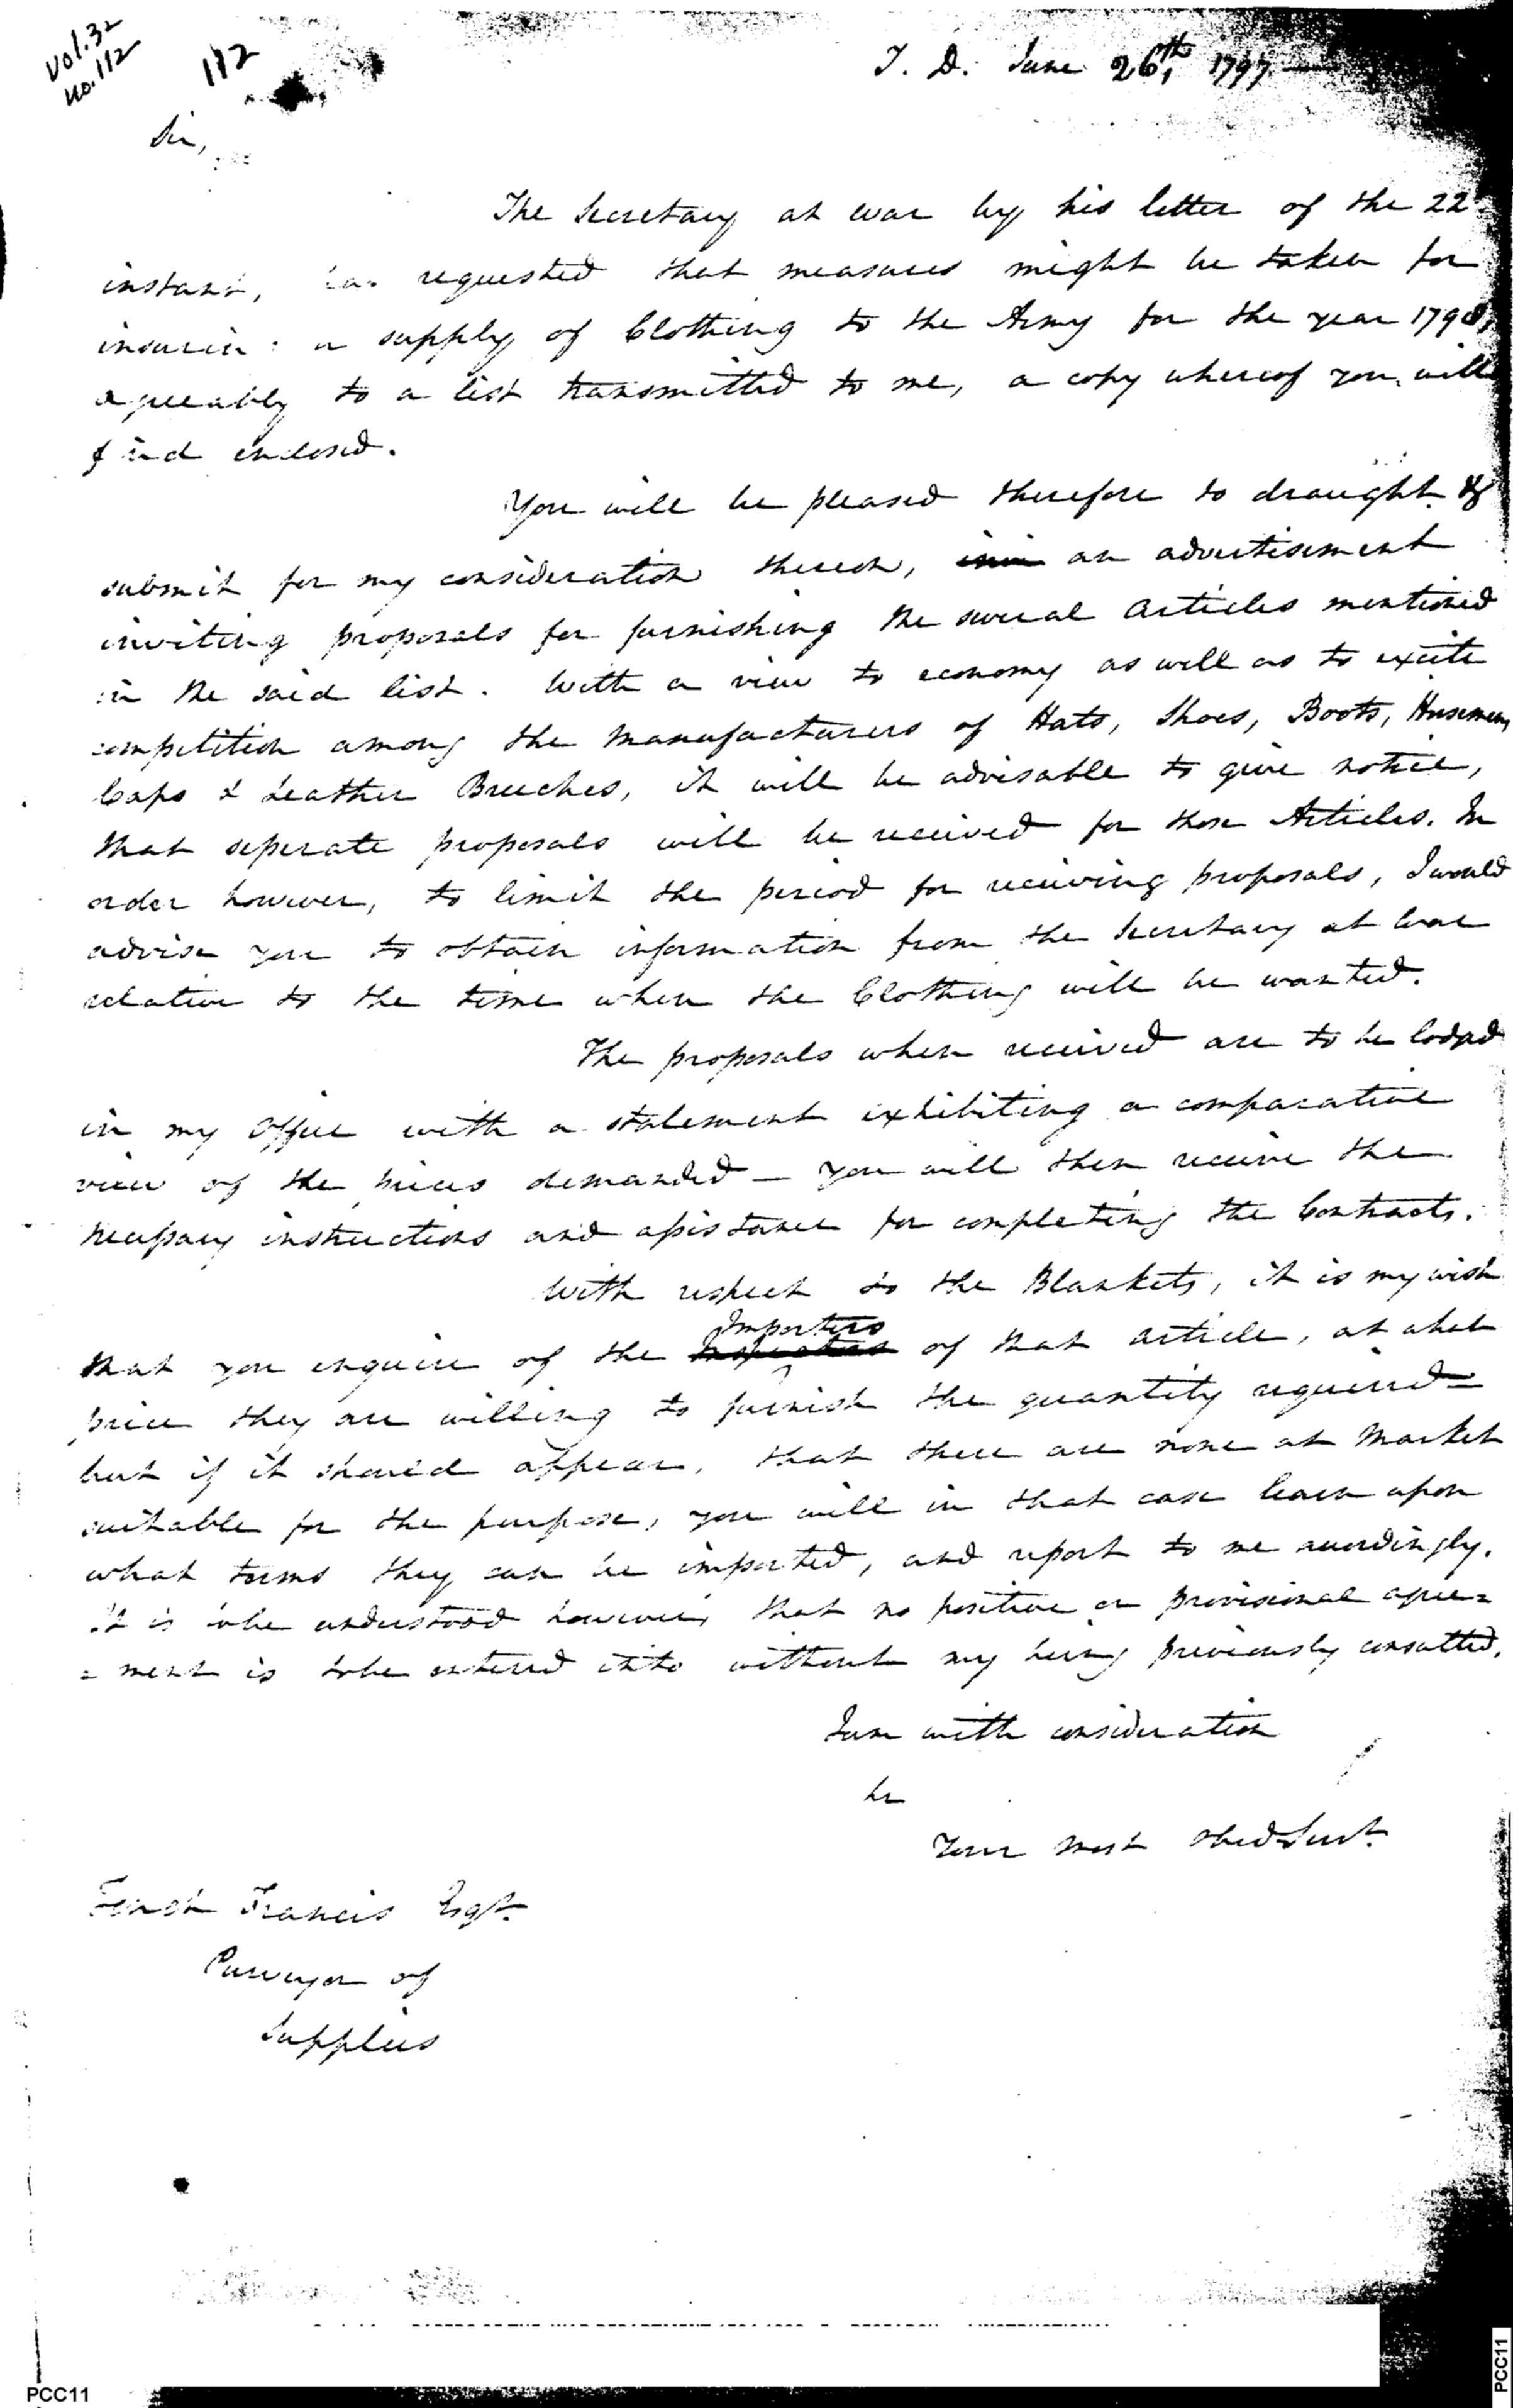 Vol. 32
no. 112
112
T. D. June 26th, 1797
Sir,
The Secretary at war by his letter of the 22
instant, has requested that measures might be taken for
insuring a supply of Clothing to the Army for the year 1798,
agreeably to a list transmitted to me, a copy whereof you will
find enclosed.
You will be pleased therefore to draught &
submit for my consideration thereon, an advertisement
inviting proposals for furnishing the several articles mentioned
in the said list. With a view to economy as well as to excite
competition among the manufacturers of Hats, Shoes, Boots, Horsemen
Caps & Leather Breeches, it will be advisable to give notice,
that seperate proposals will be received for those Articles. In
order however, to limit the period for receiving proposals, I would
advise you to obtain information from the Secretary at war
relative to the time when the Clothing will be wanted.
The proposals when received are to be lodged
in my Office with a statement exhibiting a comparative
view of the prices demanded — you will then receive the
necessary instructions and assistance for completing the Contracts.
With respect to the Blankets, it is my wish
Importers
that you enquire of the of that article, at what
price they are willing to furnish the quantity required —
but if it should appear, that there are none at Market
suitable for the purpose, you will in that case learn upon
what terms they can be imported, and report to me accordingly.
It is to be understood however, that no positive or provisional agree=
=ment is to be entered into without my being previously consulted.
I am with consideration
Sir
Your most Obed Servt.
Tench Francis Esqr.
Purveyor of
Supplies
PCC11
PCC11